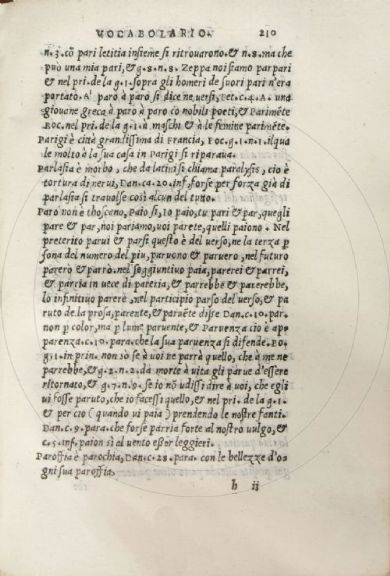 VOCABOLARIO. 210
n.3.cō pari letitia insieme si ritrouarono.& n.8.ma che
può una mia pari,& g.8.n.8. Zeppa noi siamo par pari
& nel pri.de la g.1.sopra gli homeri de suoi pari n'era
portato. A' paro à paro si dice ne uersi, Pet.c.4.A. una
giouane greca à paro à paro cō nobili poeti,& Parimēte
BOC.nel pri.de la g.1.à maschi & à le femine parimēte.
Parigi è città grandissima di Francia, Boc.g.1.n.1.ilqua
le molto à la sua casa in Parigi si riparaua.
Parlasia è morbo, che da latini si chiama paralysis, cio è
tortura di nerui, Dan.ca.20.inf,forse per forza già di
parlasia si trauolse così alcun del tutto.
Paro non è thoscano, Paio si, Io paio, tu pari & par, quegli
pare & par, noi pariamo, uoi parete, quelli paiono. Nel
preterito parui & parsi questo è del uerso, ne la terza p
sona del numero del piu, paruono & paruero, nel futuro
parerò & parrò.nel soggiuntiuo paia, parerei & parrei,
& parria in uece di pareria, & parrebbe & parerebbe,
lo infinitiuo parere, nel participio parso del uerso, & pa
ruto de la prosa, parente, & paruēte disse Dan.c.10.par.
non p color, ma p lume paruente, & Paruenza cio è ap=
parenza.c.10.para.che la sua paruenza si difende. Bo.
g.1.in prin. non so se à uoi ne parrà quello, che à me ne
parrebbe,& g.2.n.2.da morte à uita gli parue d'essere
ritornato,& g.7.n.9.se io nō udissi dire à uoi, che egli
ui fosse paruto, che io facessi quello, & nel pri. de la g.1.
& per cio ( quando ui paia ) prendendo le nostre fanti.
Dan.c.9.para.che forse parria forte al nostro uulgo,&
c.5.inf.paion sì al uento esser leggieri.
Paroffia è parochia, Dan.c.28.para. con le bellezze d'o=
gni sua paroffia.
h ii